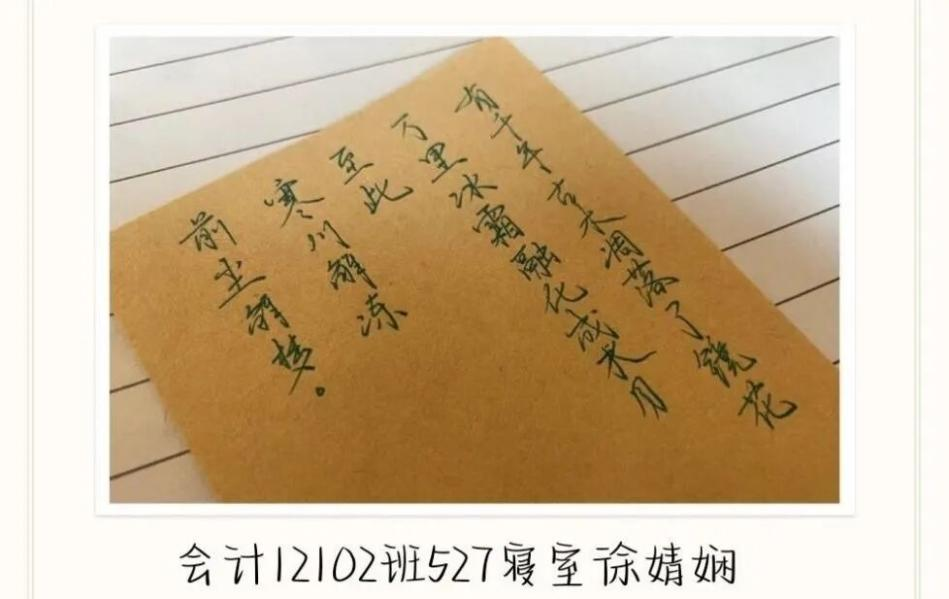 有千年古木凋落了镜花
万里冰霜融化成水月
至此
寒川解冻
前尘解梦。
会计12102班527寝室徐婧娴